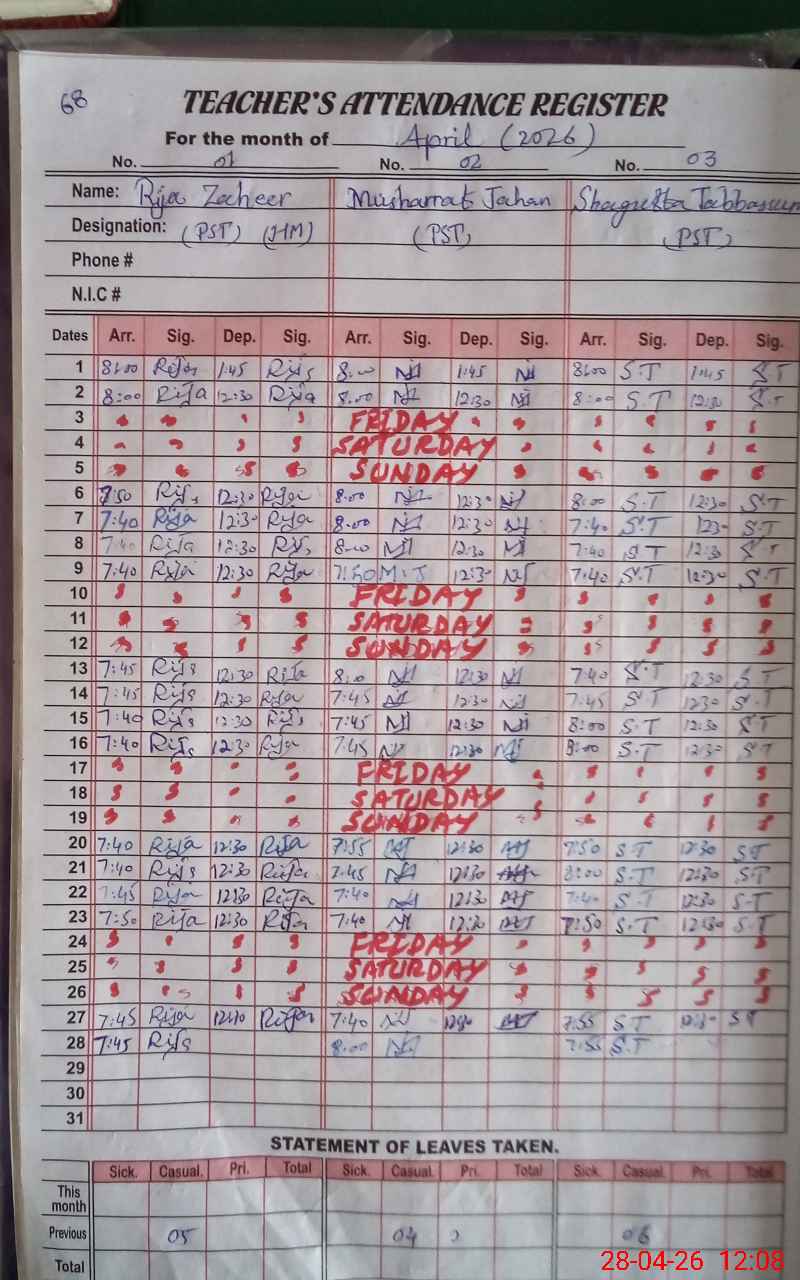 68
TEACHER'S ATTENDANCE REGISTER
For the month of April (2026)
No. 01 No. 02 No. 03
Name: Rija Zaheer Musharrat Jahan Shagufta Tabbasum
Designation: (PST) (HM) (PST) (PST)
Phone #
N.I.C #
Dates Arr. Sig. Dep. Sig. Arr. Sig. Dep. Sig. Arr. Sig. Dep. Sig.
1 8:00 Rija 1:45 Rija 8:00 MJ 1:45 MJ 8:00 S.T 1:45 S.T
2 8:00 Rija 12:30 Rija 8:00 MJ 12:30 MJ 8:00 S.T 12:30 S.T
3 FRIDAY
4 SATURDAY
5 SUNDAY
6 7:50 Rija 12:30 Rija 8:00 MJ 12:30 MJ 8:00 S.T 12:30 S.T
7 7:40 Rija 12:30 Rija 8:00 MJ 12:30 MJ 7:40 S.T 1230 S.T
8 7:40 Rija 12:30 Rija 8:00 MJ 12:30 MJ 7:40 S.T 12:30 S.T
9 7:40 Rija 12:30 Rija 7:50 M.J 12:30 MJ 7:40 S.T 12:30 S.T
10 FRIDAY
11 SATURDAY
12 SUNDAY
13 7:45 Rija 12:30 Rija 8:00 MJ 12:30 MJ 7:40 S.T 12:30 S.T
14 7:45 Rija 12:30 Rija 7:45 MJ 12:30 MJ 7:45 S.T 1230 S.T
15 7:40 Rija 12:30 Rija 7:45 MJ 12:30 MJ 8:00 S.T 12:30 S.T
16 7:40 Rija 12:30 Rija 7:45 MJ 12:30 MJ 8:00 S.T 12:30 S.T
17 FRIDAY
18 SATURDAY
19 SUNDAY
20 7:40 Rija 12:30 Rija 7:55 MJ 12:30 MJ 7:50 S.T 12:30 S.T
21 7:40 Rija 12:30 Rija 7:45 MJ 12:30 8:00 S.T 12:30 S.T
22 7:45 Rija 12:30 Rija 7:40 MJ 12:30 MJ 7:40 S.T 12:30 S.T
23 7:50 Rija 12:30 Rija 7:40 MJ 12:30 MJ 7:50 S.T 12:30 S.T
24 FRIDAY
25 SATURDAY
26 SUNDAY
27 7:45 Rija Rija 7:40 MJ MJ 7:55 S.T 12:30 S.T
28 7:45 Rija 8:00 MJ 7:55 S.T
29
30
31
STATEMENT OF LEAVES TAKEN.
Sick. Casual. Pri. Total Sick. Casual. Pri. Total Sick. Casual. Pri. Total
This month
Previous 05 04 06
Total
28-04-26 12:08